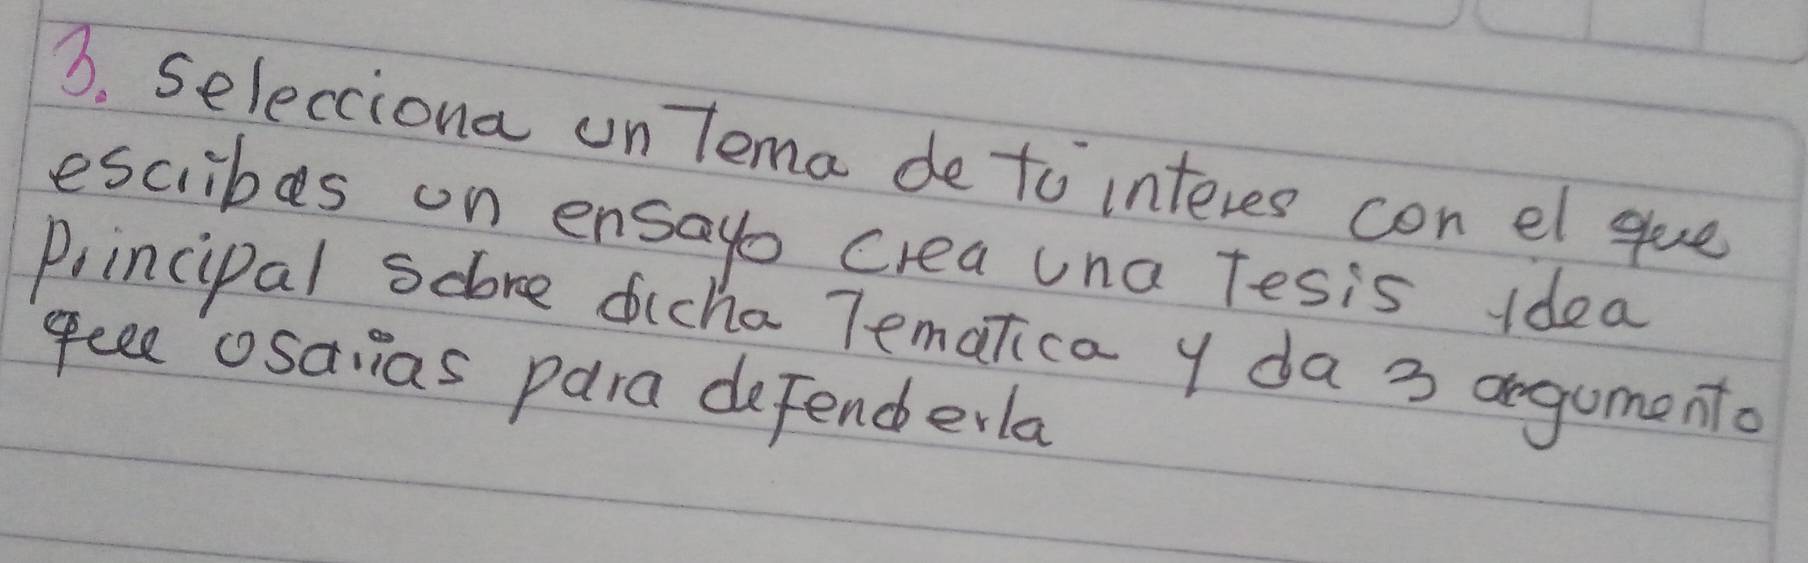 3. Selecciona un Tema de tu interes con el que
escribas un ensayo crea una Tesis idea
Principal sobre dicha Tematica y da 3 argumento
que usarias para defenderla